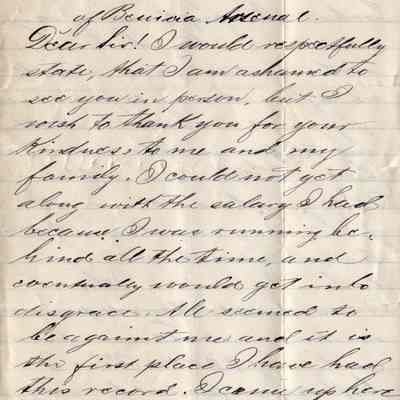 of Benicia Arsenal.
Dear Sir! I would respectfully
state, that I am ashamed to
see you in person, but I
wish to thank you for your
kindness to me and my
family. I could not get
along with the salary I had
because I was running be-
hind all the time, and
eventually would get into
disgrace. All seemed to
be against me and it is
the first place I have had
this record. I came up here